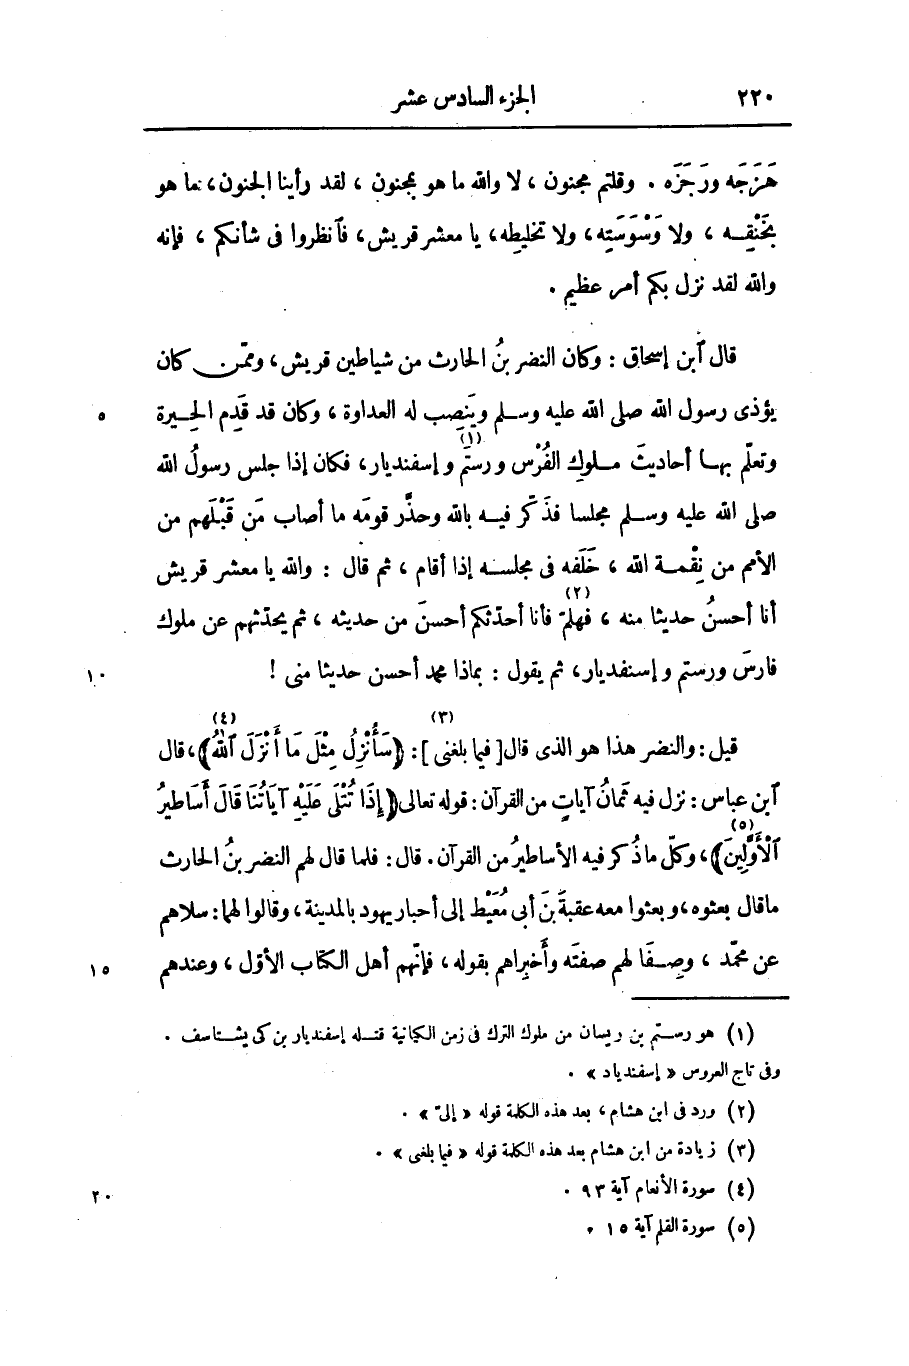 ٢٢٠ الجزء السادس عشر
هَزَجَه ورَجَزَه . وقلتم مجنون ، لا والله ما هو بمجنون ، لقد رأينا الجنون، ما هو
بخَنْقِـه ، ولا وَسْوَسَتِه، ولا تخليطه، يا معشر قريش، فٱنظروا فى شأنكم ، فإنه
والله لقد نزل بكم أمر عظيم .
قال ٱبن إسحاق : وكان النضر بنُ الحارث من شياطين قريش، وممّن كان
يؤذى رسول الله صلى الله عليه وسلم وينَصِب له العداوة ، وكان قد قَدِم الحِيرة ٥
وتعلّم بهـا أحاديثَ مـلوكِ الفُرْس ورستم وإسفنديار(١)، فكان إذا جلس رسولُ الله
صلى الله عليه وسـلم مجلسا فذَكّر فيـه بالله وحذَّر قومَه ما أصاب مَن قَبْلَهم من
الأمم من نِقْمـة الله ، خَلَفه فى مجلسـه إذا أقام ، ثم قال : والله يا معشر قريش
أنا أحسنُ حديثا منه ، فهلمّ(٢) فأنا أحدّثكم أحسنَ من حديثه ، ثم يحدّثهم عن ملوك
فارسَ ورستم وإسنفديار، ثم يقول : بماذا محمد أحسن حديثا منى ! ١٠
قيل : والنضر هذا هو الذى قال [فيما بلغنى(٣)] : ﴿سَأُنْزِلُ مِثْلَ مَا أَنْزَلَ ٱللهُ(٤)﴾، قال
ٱبن عباس : نزل فيه ثمانُ آياتٍ من القرآن : قوله تعالى ﴿إِذَا تُتْلَى عَلَيْهِ آيَاتُنَا قَالَ أَسَاطِيرُ
ٱلْأَوَّلِينَ(٥)﴾، وكلّ ما ذُكر فيه الأساطيرُ من القرآن . قال : فلما قال لهم النضر بنُ الحارث
ما قال بعثوه، وبعثوا معه عقبةَ بنَ أبى مُعَيْط إلى أحبار يهود بالمدينة، وقالوا لهما : سلاهم
عن محمّد ، وصِـفَا لهم صفتَه وأَخبِراهم بقوله ، فإنّهم أهل الكتاب الأوّل ، وعندهم ١٥
(١) هو رستم بن ريسان من ملوك الترك فى زمن الكيانية قتـله إسفنديار بن كى يشتـاسف .
وفى تاج العروس « إسفندياد » .
(٢) ورد فى ابن هشام ، بعد هذه الكلمة قوله « إلىّ » .
(٣) زيادة من ابن هشام بعد هذه الكلمة قوله « فيما بلغى » .
(٤) سورة الأنعام آية ٩٣ . ٢٠
(٥) سورة القلم آية ١٥ .